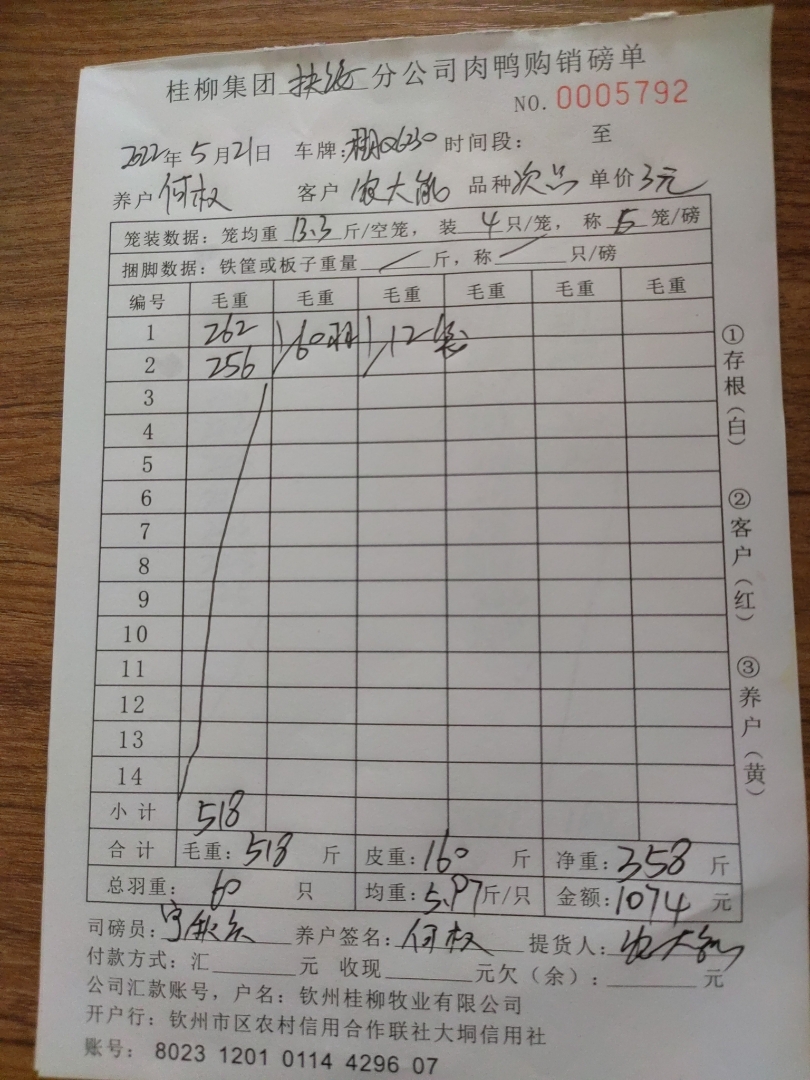 桂柳集团 分公司肉鸭购销磅单
NO. 0005792
2022年5月21日 车牌: Q6230 时间段: 至
养户 何权 客户 农大 品种 次品 单价 3元
笼装数据：笼均重 13.3 斤/空笼， 装 4 只/笼， 称 5 笼/磅
捆脚数据：铁筐或板子重量 斤，称 只/磅
编号 毛重 毛重 毛重 毛重 毛重 毛重
1 262 60羽 12笼
2 256
3
4
5
6
7
8
9
10
11
12
13
14
小计 518
合计 毛重：518 斤 皮重：160 斤 净重：358 斤
总羽重： 60 只 均重：5.97斤/只 金额：1074 元
司磅员： 养户签名：何权 提货人：农大
付款方式：汇 元 收现 元欠（余）： 元
公司汇款账号，户名：钦州桂柳牧业有限公司
开户行：钦州市区农村信用合作联社大垌信用社
账号： 8023 1201 0114 4296 07
①存根（白） ②客户（红） ③养户（黄）